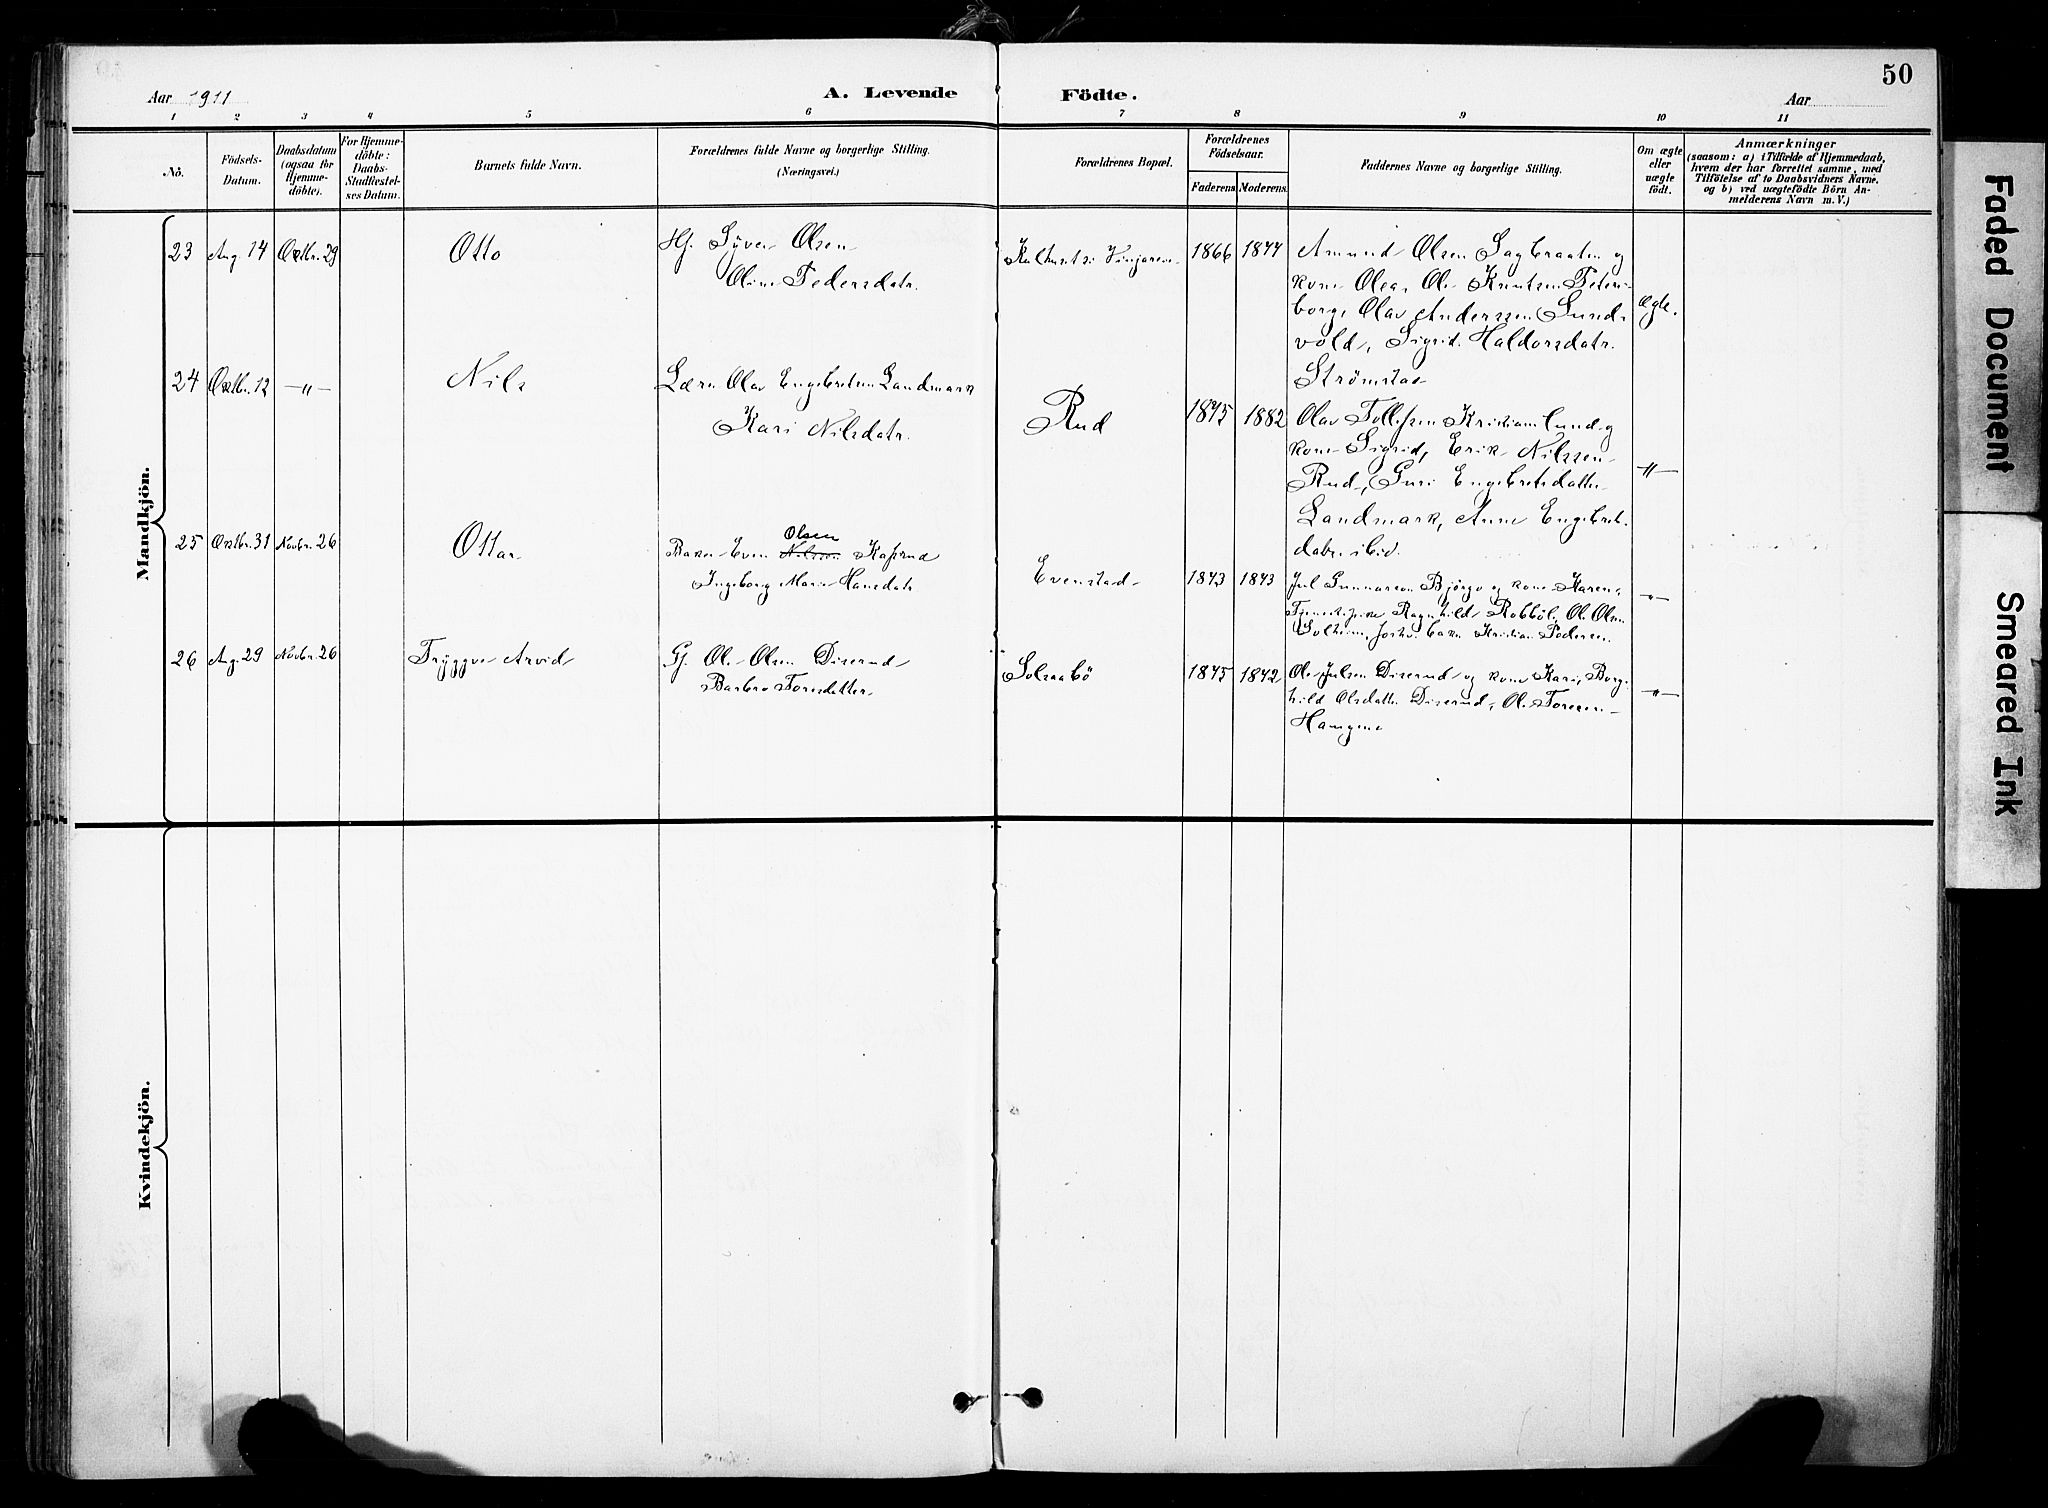 50
Aar 1911
A. Levende Födte.
Aar
1 2 3 4 5 6 7 8 9 10 11
No.
Födsels-
Datum.
Daabsdatum
(ogsaa for
Hjemme-
döbte).
For Hjemme-
döbte:
Daabs-
Stadfæstel-
ses Datum.
Barnets fulde Navn.
Forældrenes fulde Navne og borgerlige Stilling.
(Næringsvei.)
Forældrenes Bopæl.
Forældrenes
Födselsaar.
Faderens
Moderens.
Faddernes Navne og borgerlige Stilling.
Om ægte
eller
uægte
født.
Anmærkninger
(saasom: a) i Tilfælde af Hjemmedaab,
hvem der har forrettet samme, med
Tilföielse af to Daabsvidners Navne.
og b) ved uægtefödte Börn An-
melderens Navn m. V.)
Mandkjön.
23 Aug. 14 Oktbr. 29
Otto
Hj. Syver Olsen
Oline Pedersdatr.
1866 1877
Amund Olsen Sagbraaten og
kone Olea, Ole Knutsen Peters-
borg, Olav Anderssen Sund-
vold, Sigrid Haldorsdatr.
Strømstad
ægte.
24 Oktbr. 12 —〃—
Nils
Lærer Olav Engebretsen Landmark
Kari Nilsdatr.
Rud
1875 1882
Olav Tollefsen Kristianslund og
kone Sigrid, Erik Nilssen
Rud, Guri Engebretsdatter
Landmark, Anne Engebrets-
datr. ibid.
—〃—
25 Oktbr. 31 Novbr. 26
Ottar
Olsen
Baker Even Nilssen
Ingeborg Marie Hansdatr
Evenstad
1873 1873
Jul Gunnarson Bjørgo og kone Karen,
Ragnhild Robböle, Ole Olsen
Solheim, Kristian Pedersen.
—〃—
26 Aug. 29 Novbr. 26
Tryggve Arvid
Gj. Ole Olsen Diserud
Barbro Toresdatter
Solsaabö
1875 1872
Ole Julsen Diserud og kone Kari, Borg-
hild Olsdatter Diserud, Ole Toresen
—〃—
Kvindekjön.
Faded Document
Smeared Ink